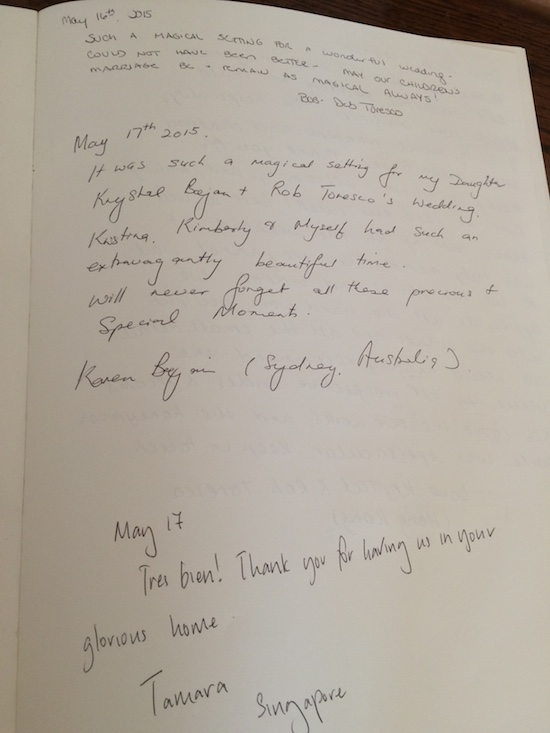 May 16th, 2015
SUCH A MAGICAL SETTING FOR A wonderful wedding.
COULD NOT HAVE BEEN BETTER - MAY OUR CHILDREN'S
MARRIAGE BE & REMAIN AS MAGICAL ALWAYS!
BOB - Deb Toresco
May 17th 2015.
It was such a magical setting for my Daughter
Krystal + Rob Toresco's Wedding.
Kristina, Kimberly & Myself had such an
extravagantly beautiful time.
will never forget all these precious +
Special Moments.
Karen (Sydney, Australia)
May 17
Tres bien! Thank you for having us in your
glorious home.
Tamara Singapore